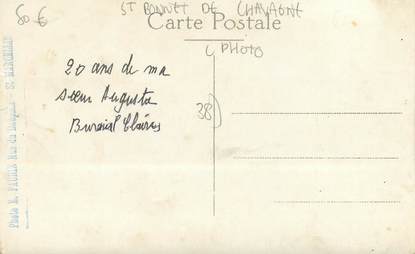 80 €
ST BONNET DE CHAVAGNE
Carte Postale
( PHOTO
20 ans de ma
sœur Augusta
38)
Photo E. Rue du St MARCELLIN